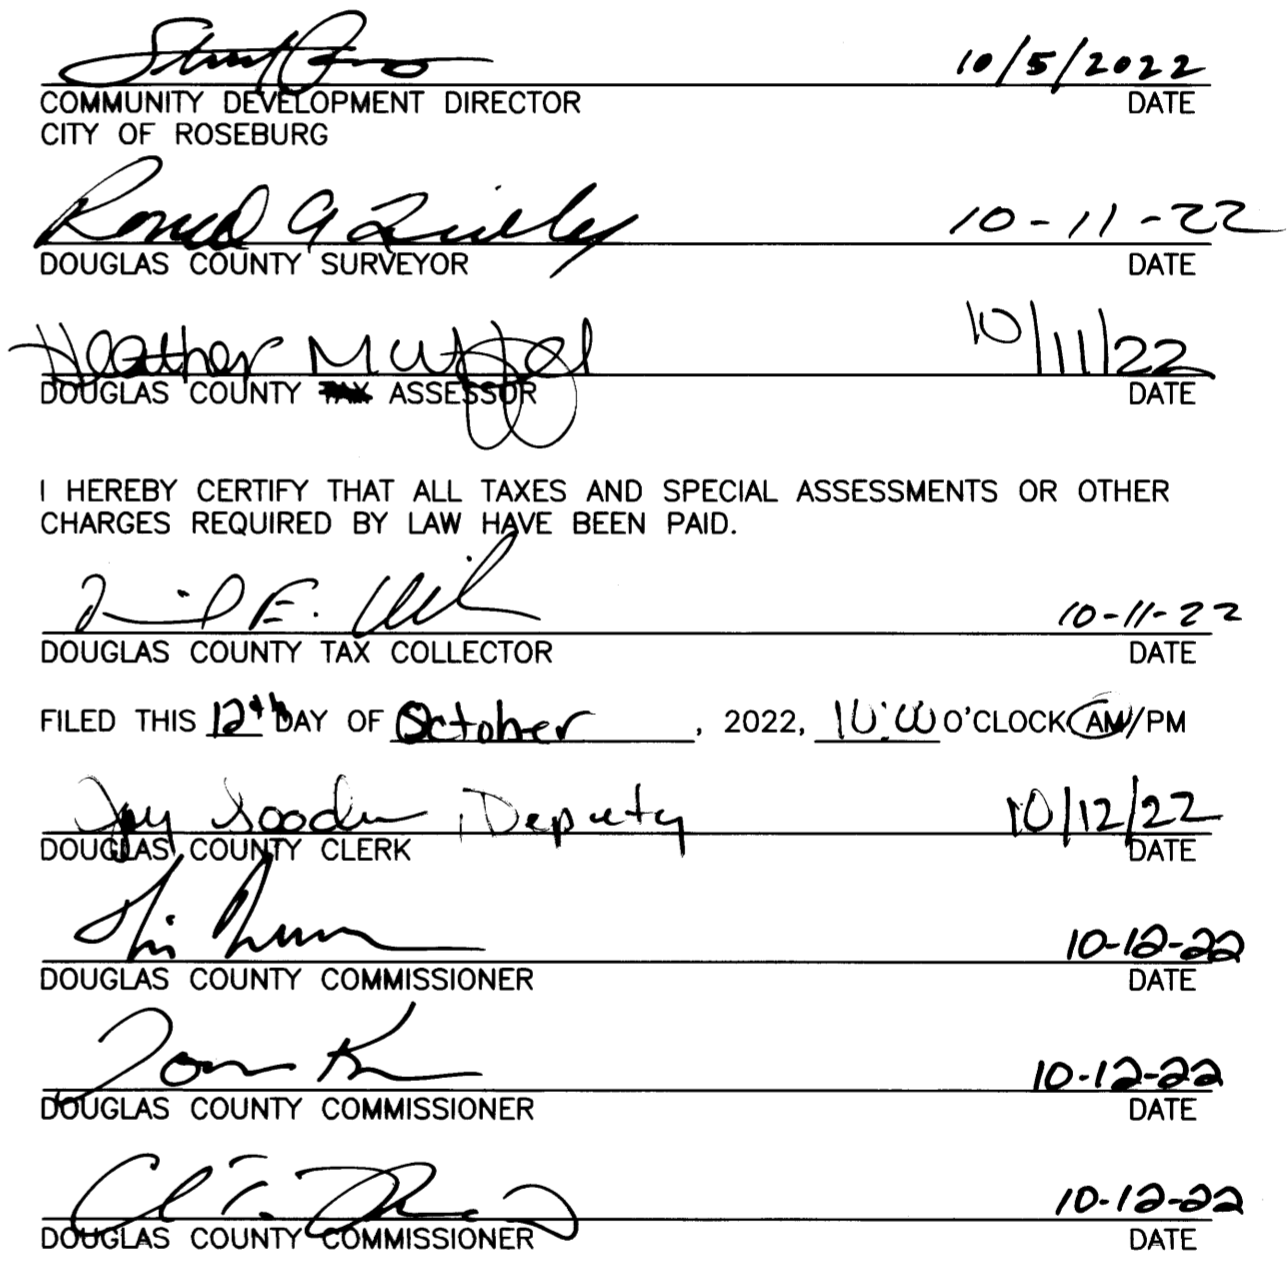 10/5/2022
COMMUNITY DEVELOPMENT DIRECTOR DATE
CITY OF ROSEBURG
Ronald 10-11-22
DOUGLAS COUNTY SURVEYOR DATE
Heather 10/11/22
DOUGLAS COUNTY TAX ASSESSOR DATE
I HEREBY CERTIFY THAT ALL TAXES AND SPECIAL ASSESSMENTS OR OTHER
CHARGES REQUIRED BY LAW HAVE BEEN PAID.
E. 10-11-22
DOUGLAS COUNTY TAX COLLECTOR DATE
FILED THIS 12th DAY OF October, 2022, 10:00 O'CLOCK AM/PM
Deputy 10/12/22
DOUGLAS COUNTY CLERK DATE
10-12-22
DOUGLAS COUNTY COMMISSIONER DATE
Tom 10-12-22
DOUGLAS COUNTY COMMISSIONER DATE
10-12-22
DOUGLAS COUNTY COMMISSIONER DATE